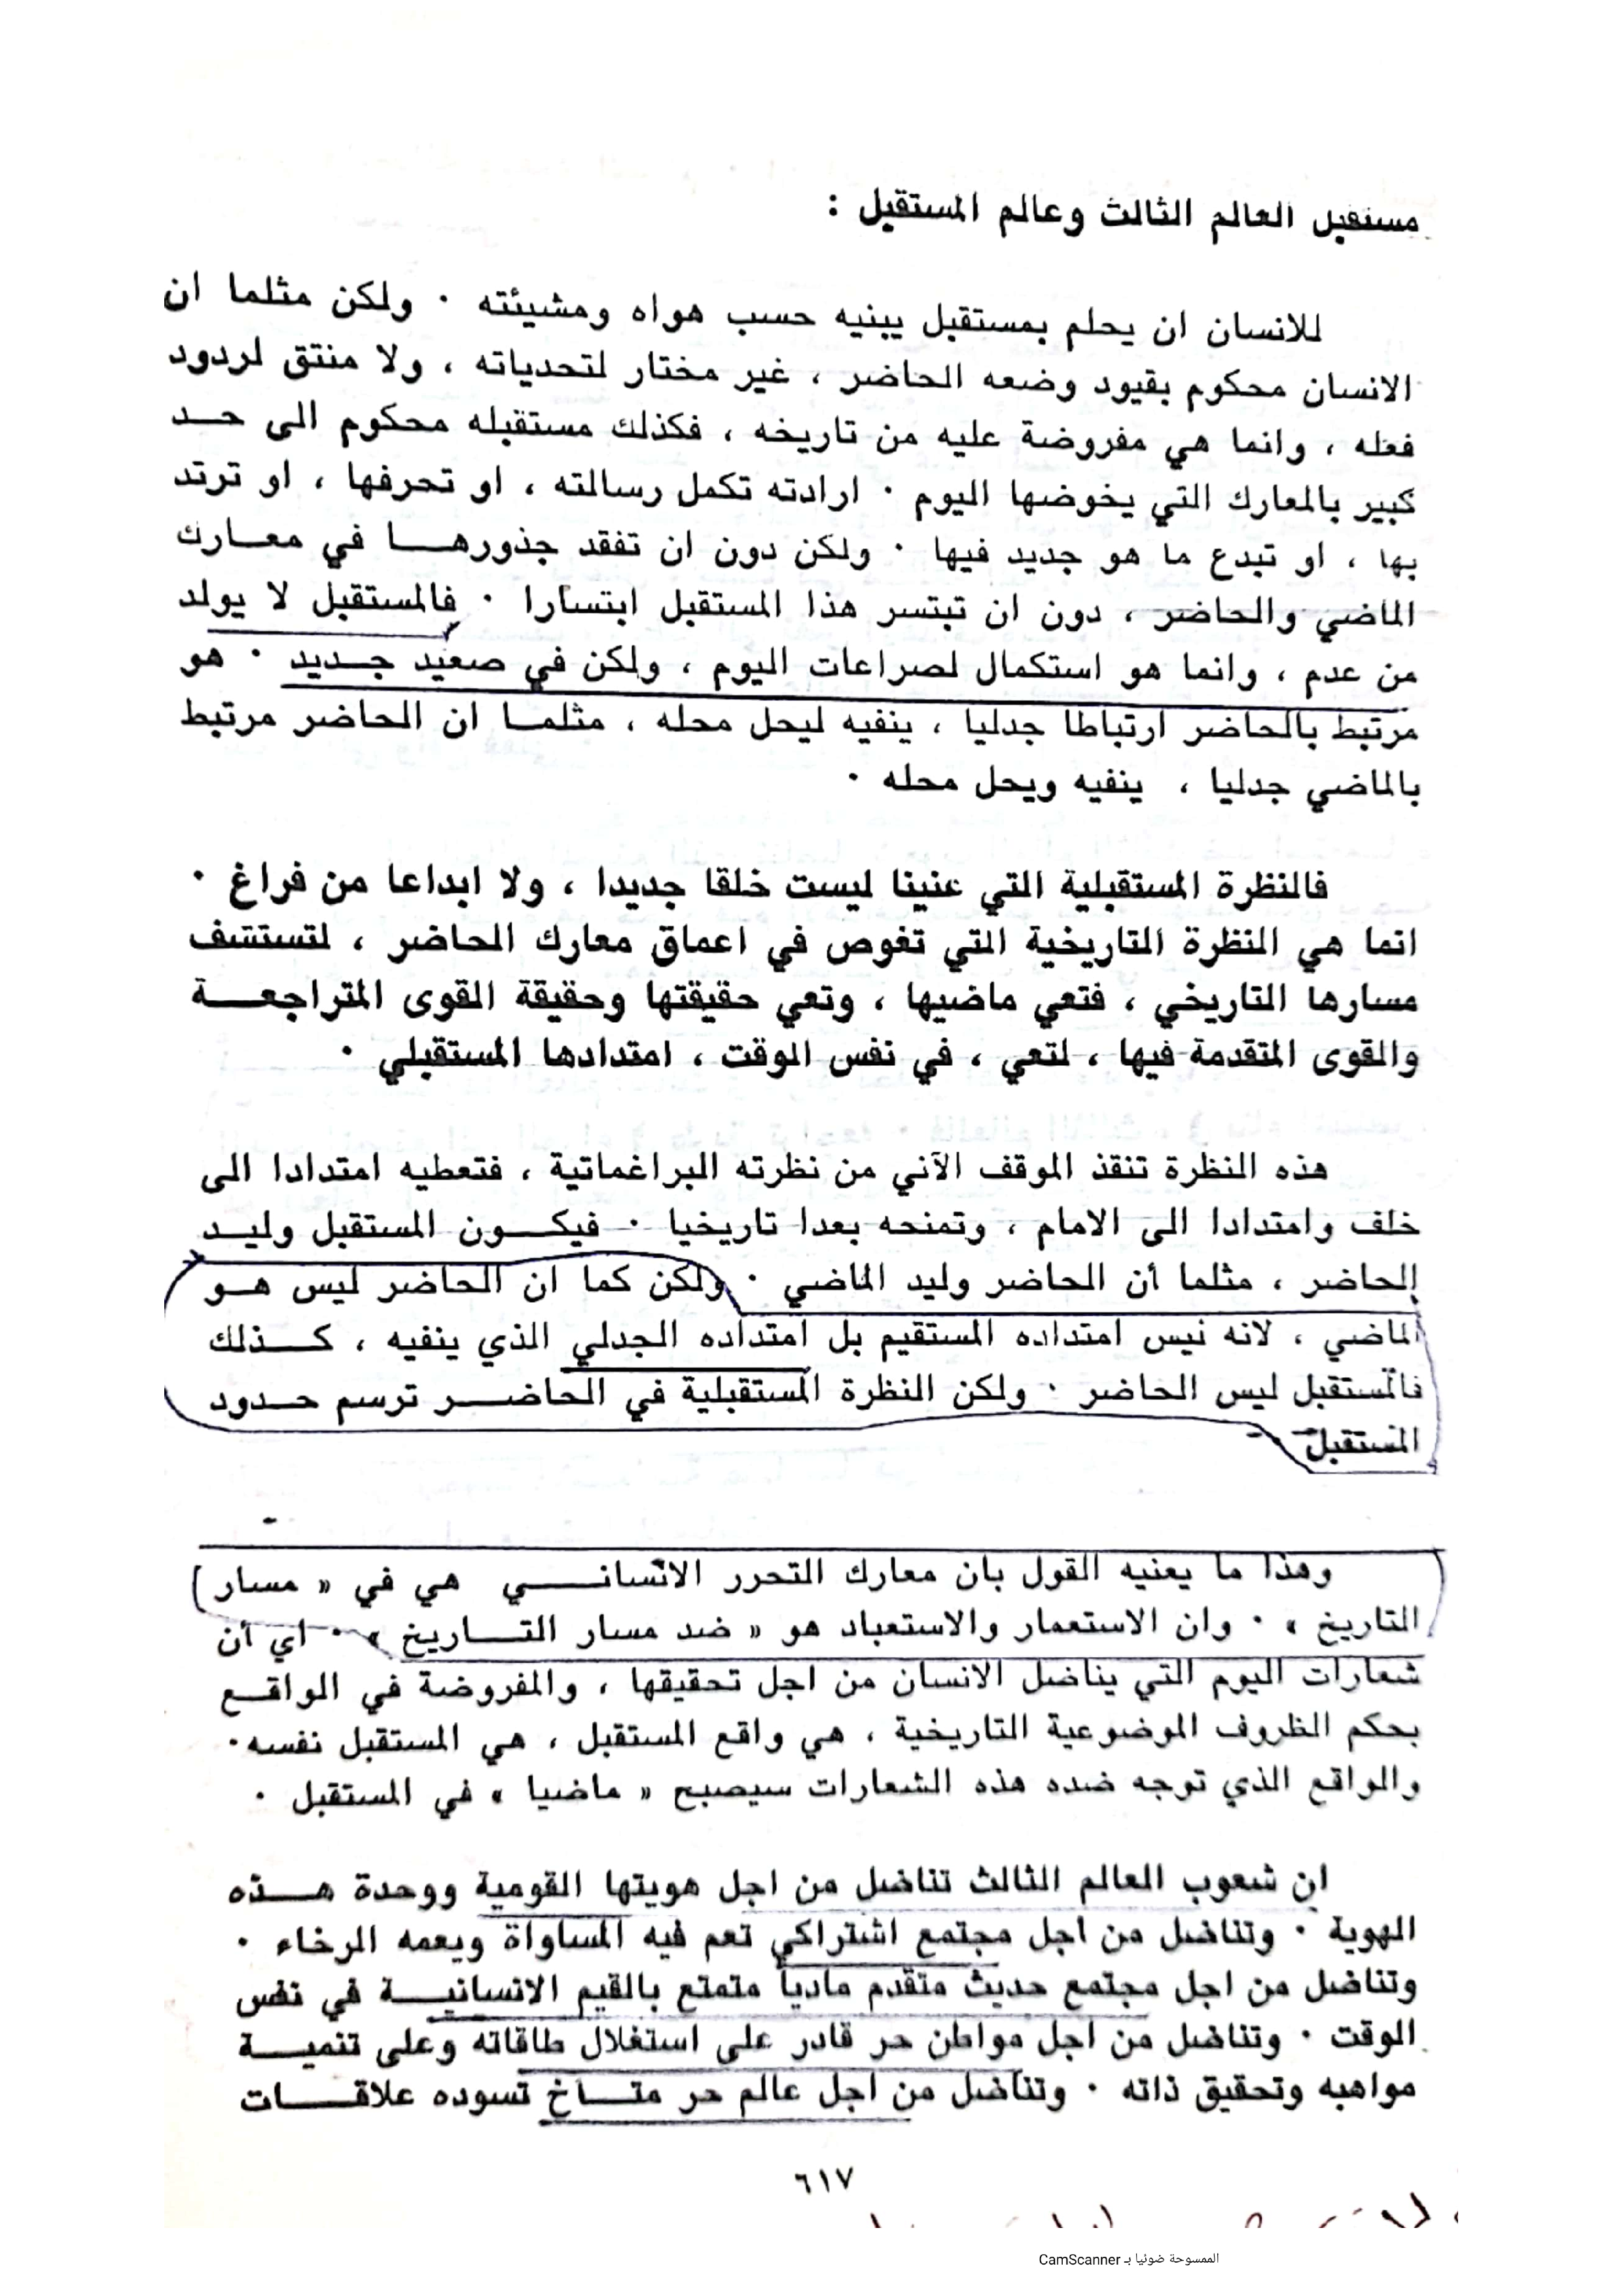 مستقبل العالم الثالث وعالم المستقبل :
للانسان ان يحلم بمستقبل يبنيه حسب هواه ومشيئته · ولكن مثلما ان
الانسان محكوم بقيود وضعه الحاضر ، غير مختار لتحدياته ، ولا منتق لردود
فعله ، وانما هي مفروضة عليه من تاريخه ، فكذلك مستقبله محكوم الى حــد
كبير بالمعارك التي يخوضها اليوم · ارادته تكمل رسالته ، او تحرفها ، او ترتد
بها ، او تبدع ما هو جديد فيها · ولكن دون ان تفقد جذورهــا في معــارك
الماضي والحاضر ، دون ان تبتسر هذا المستقبل ابتسارا · فالمستقبل لا يولد
من عدم ، وانما هو استكمال لصراعات اليوم ، ولكن في صعيد جــديد · هو
مرتبط بالحاضر ارتباطا جدليا ، ينفيه ليحل محله ، مثلمــا ان الحاضر مرتبط
بالماضي جدليا ، ينفيه ويحل محله ·
فالنظرة المستقبلية التي عنينا ليست خلقا جديدا ، ولا ابداعا من فراغ ·
انما هي النظرة التاريخية التي تغوص في اعماق معارك الحاضر ، لتستشف
مسارها التاريخي ، فتعي ماضيها ، وتعي حقيقتها وحقيقة القوى المتراجعــة
والقوى المتقدمة فيها ، لتعي ، في نفس الوقت ، امتدادها المستقبلي ·
هذه النظرة تنقذ الموقف الآني من نظرته البراغماتية ، فتعطيه امتدادا الى
خلف وامتدادا الى الامام ، وتمنحه بعدا تاريخيا · فيكــون المستقبل وليــد
الحاضر ، مثلما أن الحاضر وليد الماضي · ولكن كما ان الحاضر ليس هــو
الماضي ، لانه ليس امتداده المستقيم بل امتداده الجدلي الذي ينفيه ، كــذلك
فالمستقبل ليس الحاضر · ولكن النظرة المستقبلية في الحاضــر ترسم حــدود
المستقبل
وهذا ما يعنيه القول بان معارك التحرر الانسانــي هي في « مسار
التاريخ » · وان الاستعمار والاستعباد هو « ضد مسار التــاريخ » · اي ان
شعارات اليوم التي يناضل الانسان من اجل تحقيقها ، والمفروضة في الواقــع
بحكم الظروف الموضوعية التاريخية ، هي واقع المستقبل ، هي المستقبل نفسه·
والواقع الذي توجه ضده هذه الشعارات سيصبح « ماضيا » في المستقبل ·
ان شعوب العالم الثالث تناضل من اجل هويتها القومية ووحدة هــذه
الهوية · وتناضل من اجل مجتمع اشتراكي تعم فيه المساواة ويعمه الرخاء ·
وتناضل من اجل مجتمع حديث متقدم مادياً متمتع بالقيم الانسانيــة في نفس
الوقت · وتناضل من اجل مواطن حر قادر على استغلال طاقاته وعلى تنميــة
مواهبه وتحقيق ذاته · وتناضل من اجل عالم حر متــاخ تسوده علاقــات
٦١٧
الممسوحة ضوئيا بـ CamScanner